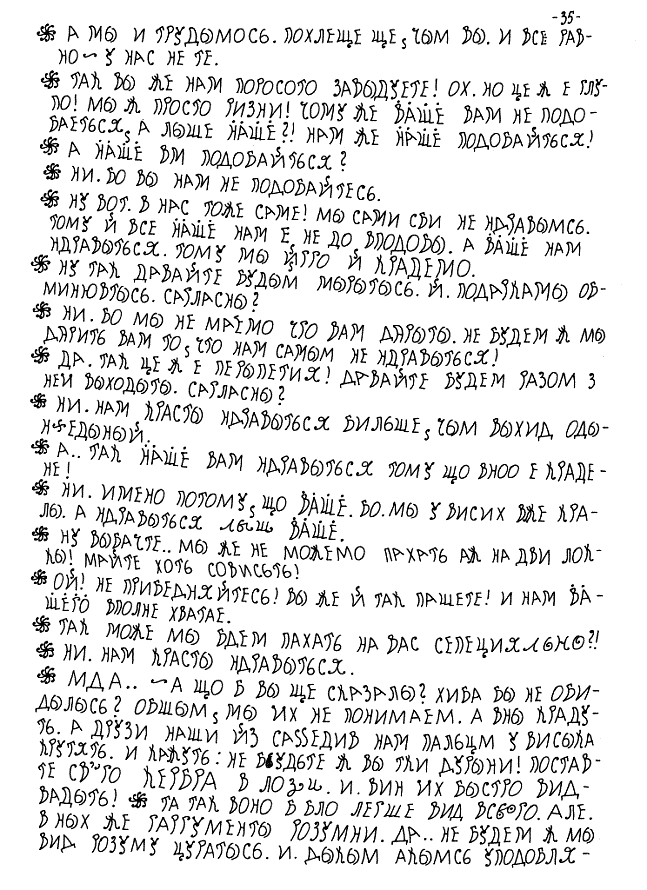 -35-
А МЫ И ТРУДЫМОСЬ. ПОХЛЕЩЕ ЩЕ, ЧЫМ ВЫ. И ВСЕ РАВ-
НО ~ У НАС НЕ ТЕ.
ТАК ВЫ ЖЕ НАМ ПОРОСОТО ЗАВЫДУЕТЕ! ОХ. НО ЦЕ Ж Е ГЛУ-
ПО! МЫ Ж ПРОСТО РИЗНИ! ЧОМУ ЖЕ ВАШЕ ВАМ НЕ ПОДО-
ВАЕТЬСЯ, А ЛЫШЕ НАШЕ?! НАМ ЖЕ НАШЕ ПОДОВАЙТЬСЯ!
А НАШЕ ВМ ПОДОБАЙТЬСЯ?
НИ. БО ВЫ НАМ НЕ ПОДОБАЙТЕСЬ.
НУ ВОТ. В НАС ТОЖЕ САМЕ! МЫ САМИ СВИ НЕ НДРАВЫМСЬ.
ТОМУ Й ВСЕ НАШЕ НАМ Е, НЕ ДО ВПОДОБЫ. А ВАШЕ НАМ
НДРАВЫТЬСЯ. ТОМУ МЫ ЙГО Й КРАДЕМО.
НУ ТАК ДАВАЙТЕ БУДЫМ МЫРЫТЫСЬ. Й. ПОДАРКАМЫ ОБ-
МИНЮВТЫСЬ. САГЛАСНЫ?
НИ. БО МЫ НЕ МАЕМО ЧТО ВАМ ДАРЫТЫ. НЕ БУДЕМ Ж МЫ
ДАРИТЬ ВАМ ТО, ЧТО НАМ САМЫМ НЕ НДРАВЫТЬСЯ!
ДА. ТАК ЦЕ Ж Е ПЕРЫПЕТИЯ! ДАВАЙТЕ БУДЕМ РАЗОМ З
НЕЙ ВЫХОДЫТЫ. САГЛАСНЫ?
НИ. НАМ КРАСТЫ НДРАВЫТЬСЯ БИЛЬШЕ, ЧЫМ ВЫХИД ОДЫ-
НЪЕДЫНЫЙ..
А.. ТАК НАШЕ ВАМ НДРАВЫТЬСЯ ТОМУ ЩО ВНОО Е КРАДЕ-
НЕ!
НИ. ИМЕНО ПОТОМУ, ЩО ВАШЕ. БО. МЫ У ВИСИХ ВЖЕ КРА-
ЛЫ. А НДРАВЫТЬСЯ ЛЫШ ВАШЕ.
НУ ВЫБАЧТЕ.. МЫ ЖЕ НЕ МОЖЕМО ПАХАТЬ АЖ НА ДВИ ЛОК-
КЫ! МАЙТЕ ХОТЬ СОВИСЬТЬ!
ОЙ! НЕ ПРИБЕДНЯЙТЕСЬ! ВЫ ЖЕ Й ТАК ПАШЕТЕ! И НАМ ВА-
ШЕГО ВПОЛНЕ ХВАТАЕ.
ТАК МОЖЕ МЫ БДЕМ ПАХАТЬ НА ВАС СЕПЕЦИЯЛЬНО?!
НИ. НАМ КРАСТЫ НДРАВЫТЬСЯ.
МДА.. ~ А ЩО Б ВЫ ЩЕ СКАЗАЛЫ? ХИБА ВЫ НЕ ОБИ-
ДЫЛЫСЬ? ОБЩЫМ, МЫ ИХ НЕ ПОНИМАЕМ. А ВНЫ КРАДУ-
ТЬ. А ДРУЗИ НАШИ ЙЗ САSSЕДИВ НАМ ПАЛЬЦМ У ВИСЫКА
КРУТЯТЬ. И КАЖУТЬ: НЕ БУУДЬТЕ Ж ВЫ ТКИ ДУРЫНИ! ПОСТАВ-
ТЕ СВОГО КЕРБРА В ЛОЗИ. И. ВИН ИХ БЫСТРО ВИД-
ВАДЫТЬ! ТА ТАК ВОНО Б БЛО ЛЕГШЕ ВИД ВСЬОГО. АЛЕ.
В НЫХ ЖЕ ГАРГУМЕНТЫ РОЗУМНИ. ДА.. НЕ БУДЕМ Ж МЫ
ВИД РОЗУМУ ЦУРАТЫСЬ. И. ДЫКЫМ АКЫМСЬ УПОДОБЛЯ-